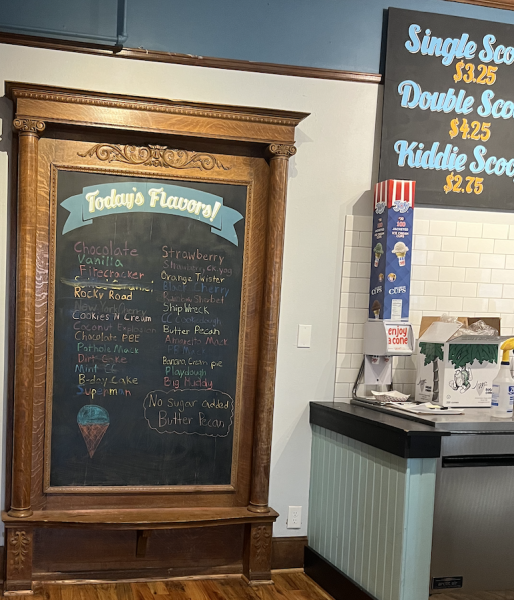 Today's Flavors!
Chocolate
Vanilla
Firecracker
Rocky Road
Cookies N Cream
Coconut Explosion
Chocolate PBE
Pothole Mack
Dirt Cake
Mint
B-day Cake
Superman
Strawberry
Strawberry
Orange Twister
Black Cherry
Sherbet
Ship Wreck
Butter Pecan
Amaretto Mack
Banana Cream pie
Playdough
Big Muddy
No Sugar added
Butter Pecan
Single Sco
$3.25
Double Sco
$4.25
Kiddie Scoo
$2.75
CUPS
enjoy
a cone